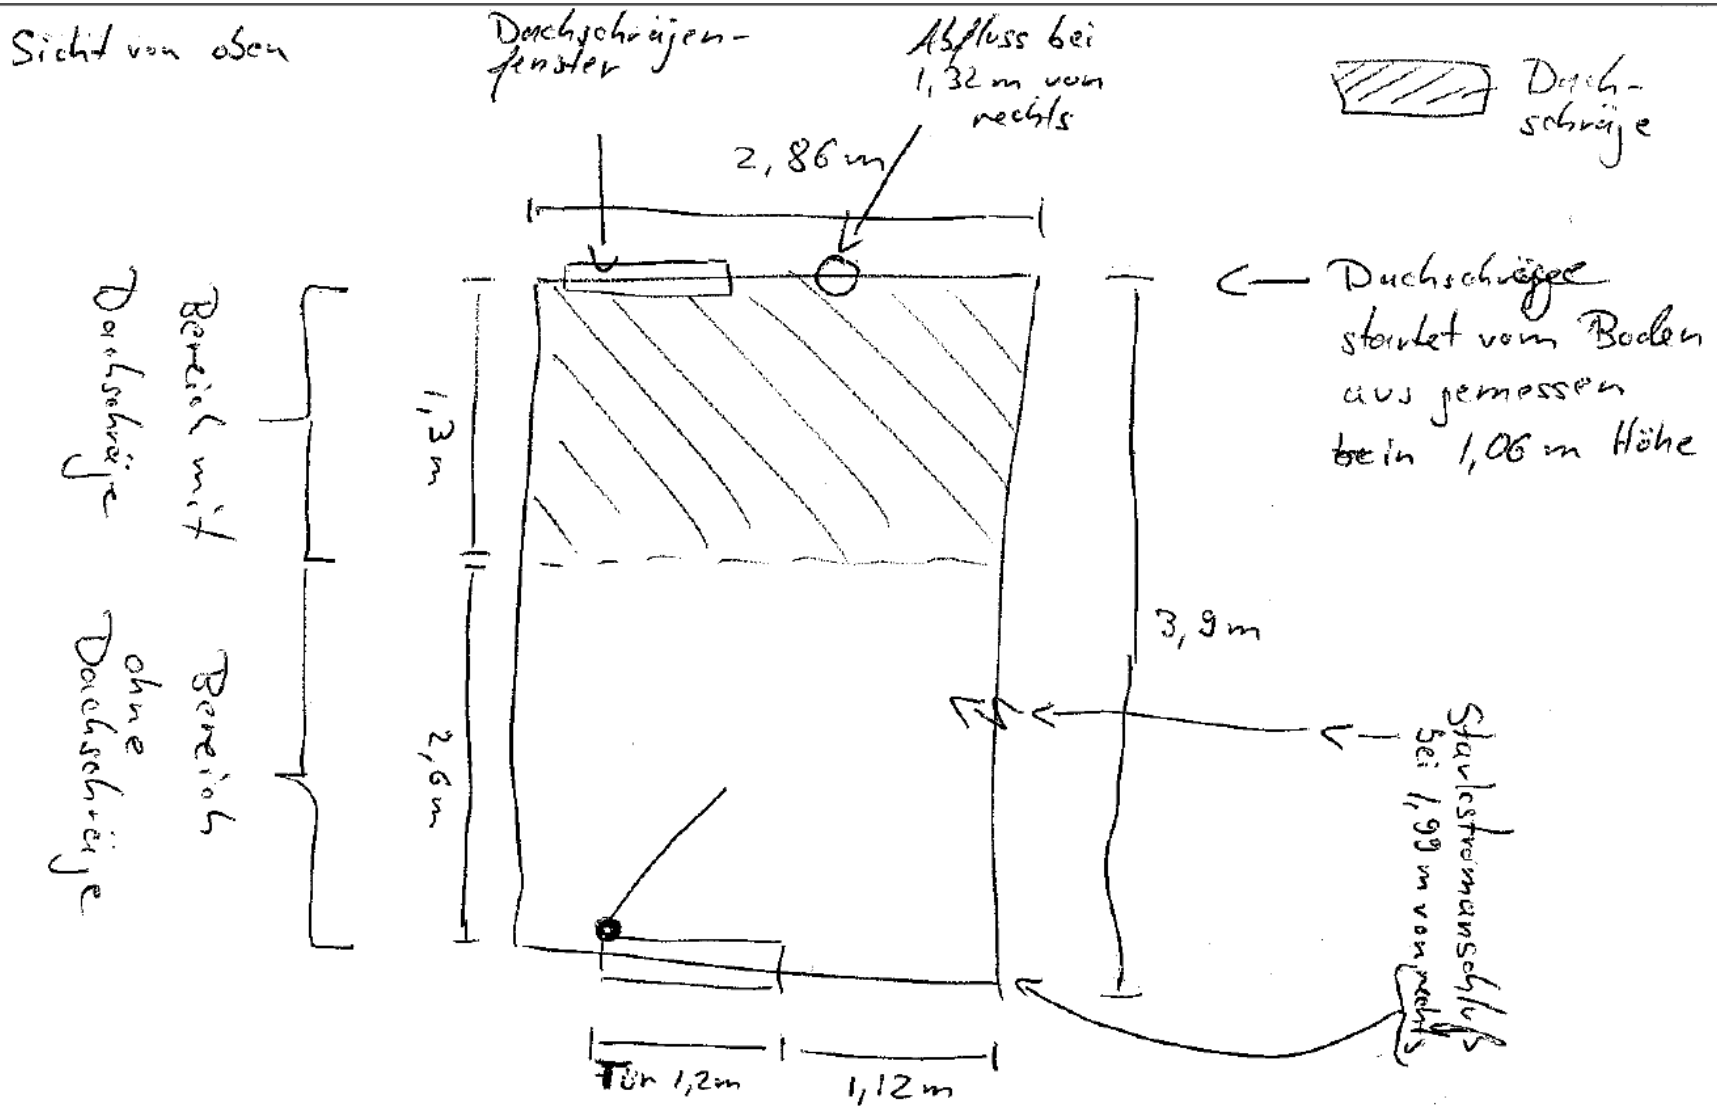 Sicht von oben
Dachschrägen-
fenster
Abfluss bei
1,32 m von
rechts
Dach-
schräge
2,86 m
Dachschräge
startet vom Boden
aus gemessen
in 1,06 m Höhe
Bereich mit
Dachschräge
1,3 m
3,9 m
Bereich
ohne
Dachschräge
2,6 m
Starkstromanschluß
bei 1,99 m von rechts
Tür 1,2 m
1,12 m